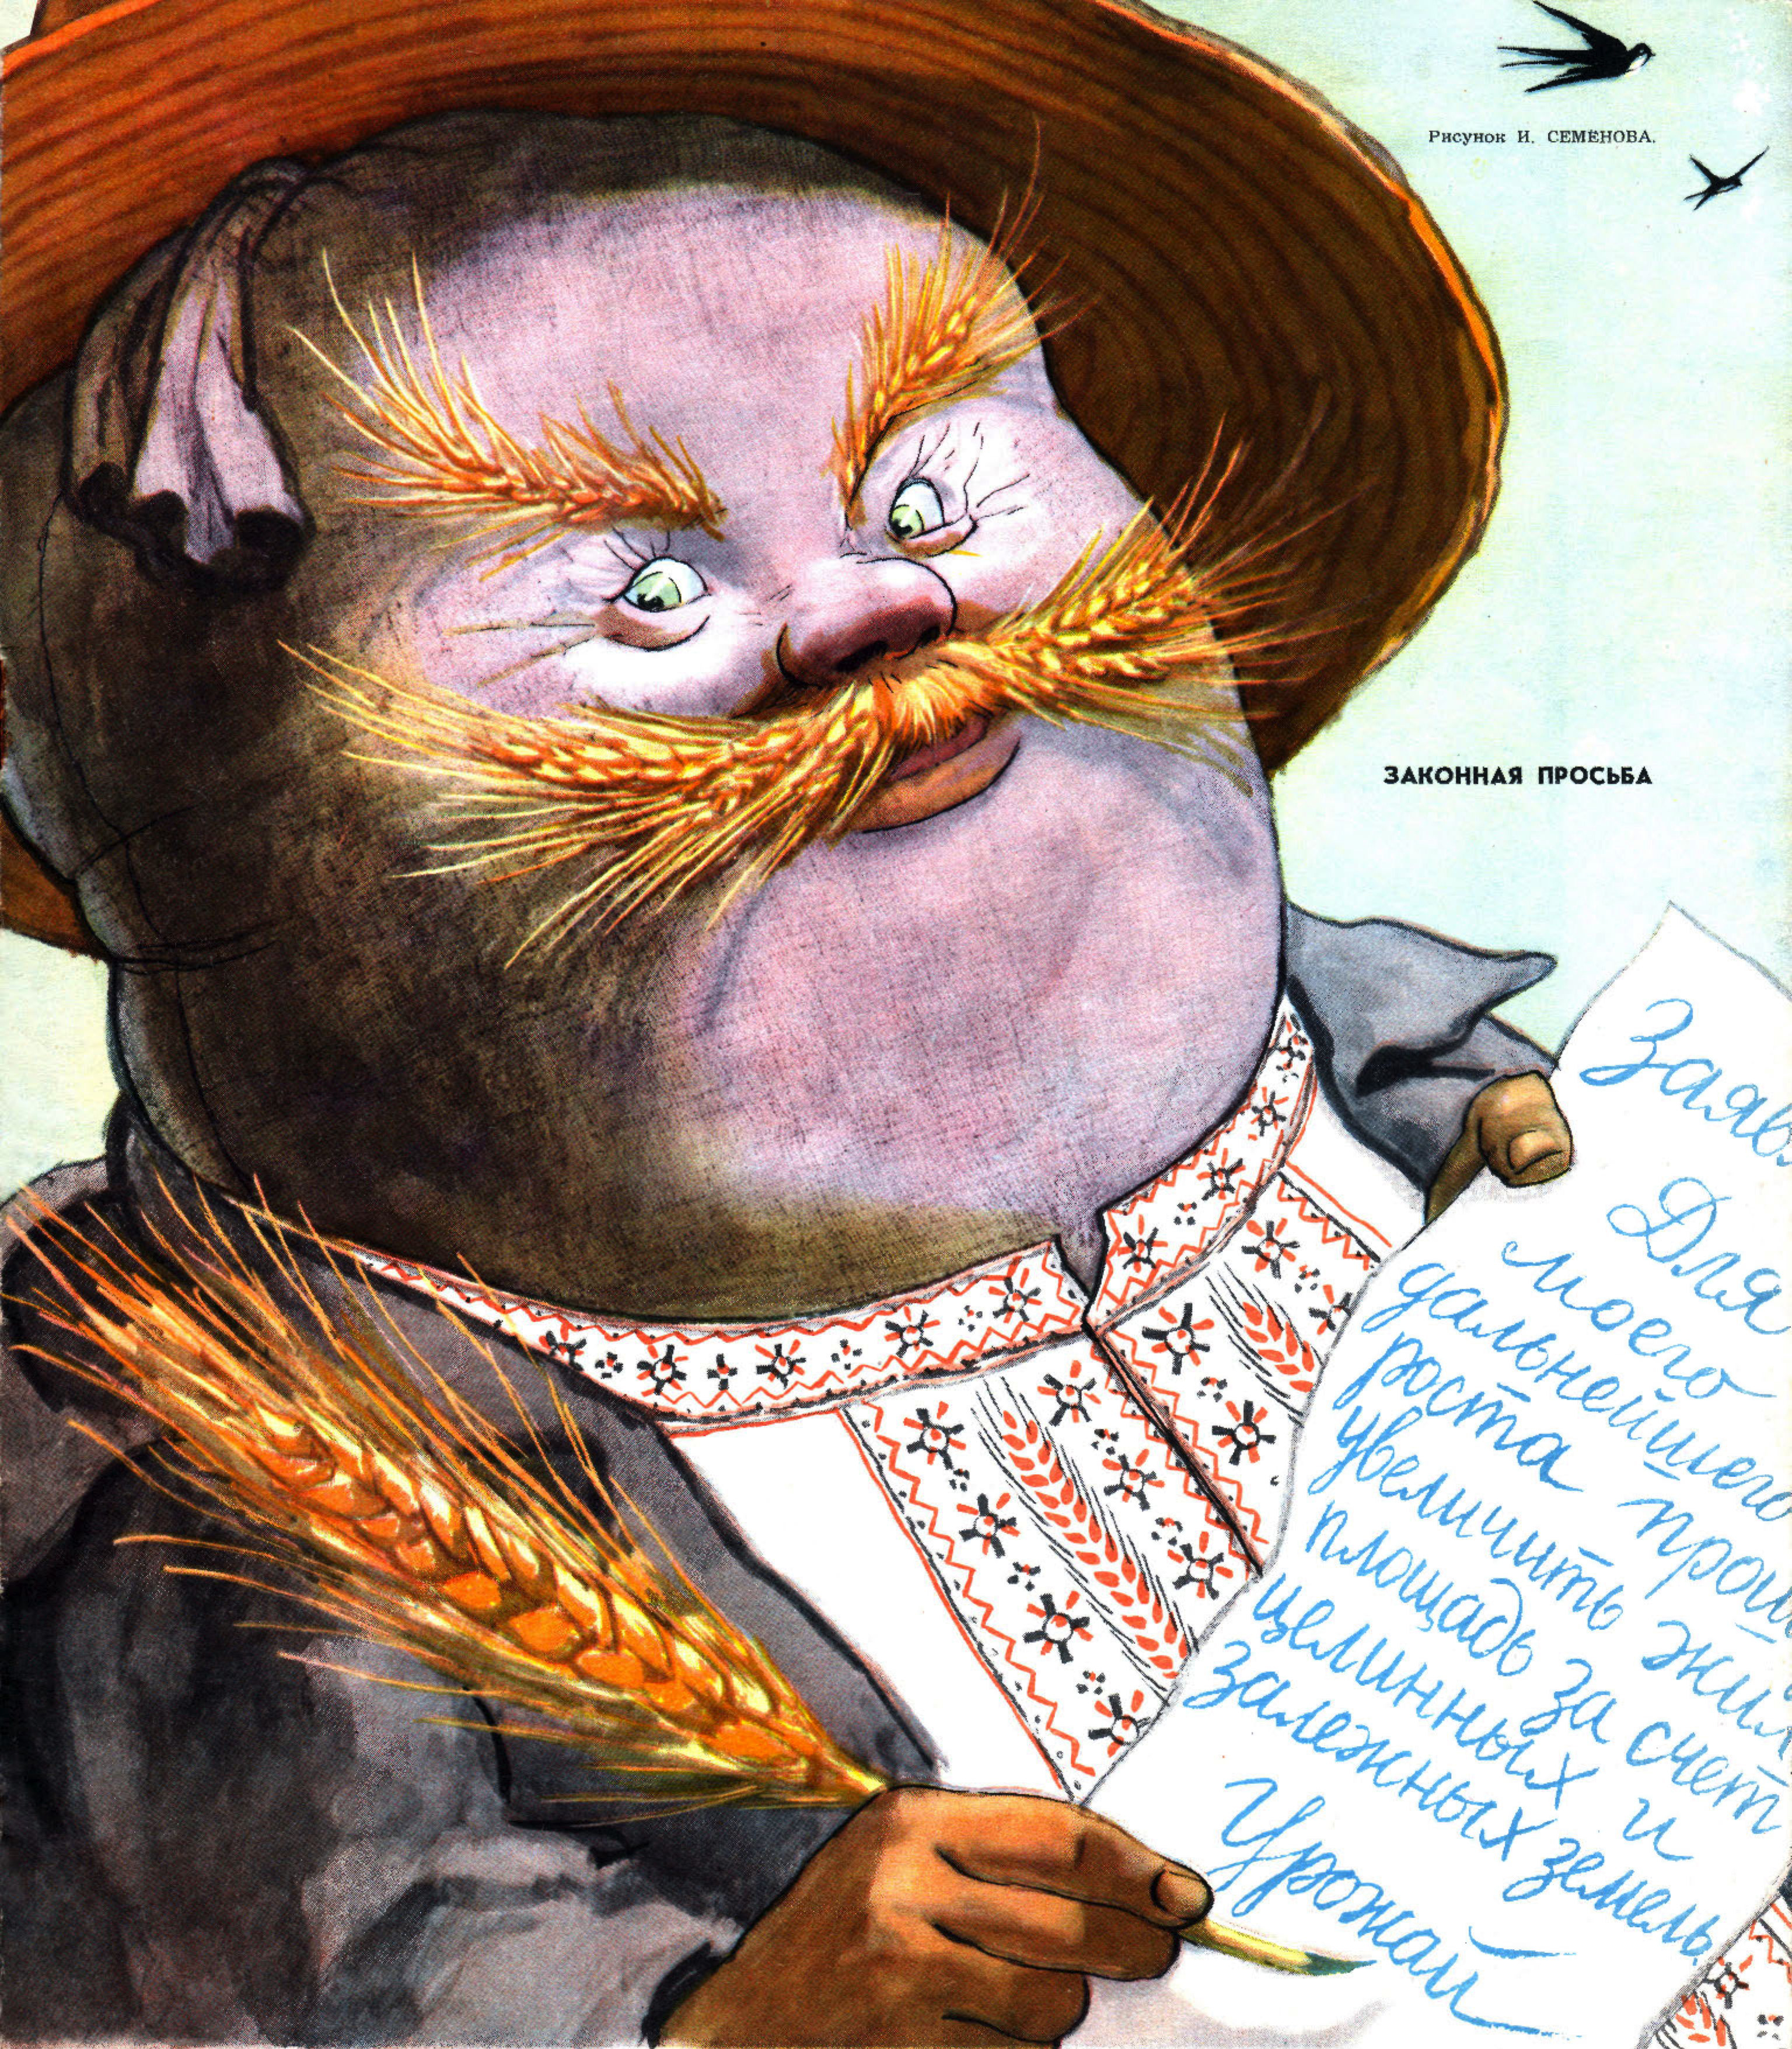 Рисунок И. СЕМЁНОВА.
ЗАКОННАЯ ПРОСЬБА
Заявл
Для
моего
дальнейшего
роста прош
увеличить жил
площадь за счет
целинных и
залежных земель.
Урожай